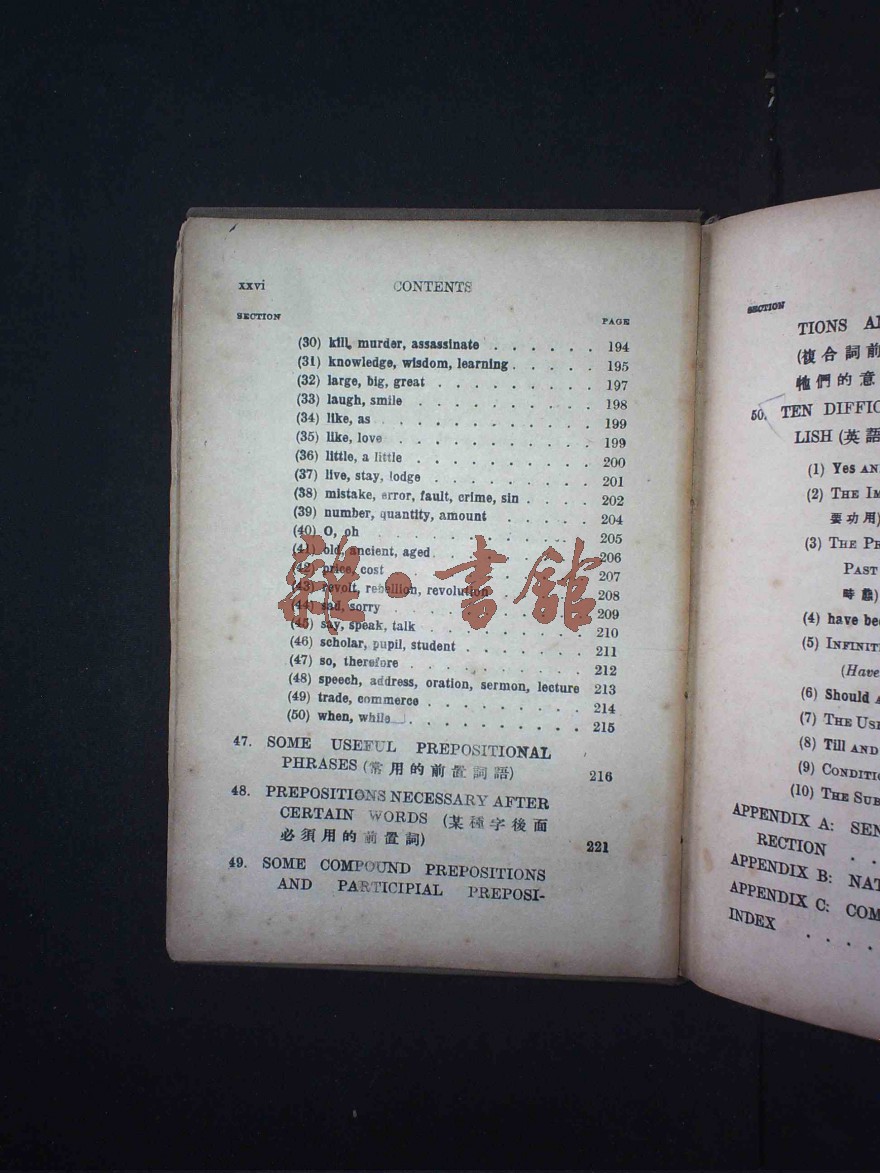 xxvi CONTENTS
SECTION PAGE
(30) kill, murder, assassinate . . . . . . 194
(31) knowledge, wisdom, learning . . . . . 195
(32) large, big, great . . . . . . . . 197
(33) laugh, smile . . . . . . . . . 198
(34) like, as . . . . . . . . . . 199
(35) like, love . . . . . . . . . 199
(36) little, a little . . . . . . . . 200
(37) live, stay, lodge . . . . . . . . 201
(38) mistake, error, fault, crime, sin . . . . 202
(39) number, quantity, amount . . . . . 204
(40) O, oh . . . . . . . . . . 205
(41) old, ancient, aged . . . . . . . 206
(42) price, cost . . . . . . . . . 207
(43) revolt, rebellion, revolution . . . . . 208
(44) sad, sorry . . . . . . . . . 209
(45) say, speak, talk . . . . . . . . 210
(46) scholar, pupil, student . . . . . . 211
(47) so, therefore . . . . . . . . 212
(48) speech, address, oration, sermon, lecture 213
(49) trade, commerce . . . . . . . 214
(50) when, while . . . . . . . . 215
47. SOME USEFUL PREPOSITIONAL
PHRASES (常用的前置詞語) 216
48. PREPOSITIONS NECESSARY AFTER
CERTAIN WORDS (某種字後面
必須用的前置詞) 221
49. SOME COMPOUND PREPOSITIONS
AND PARTICIPIAL PREPOSI-
雜·書館
SECTION
TIONS
(複合詞前
牠們的意
50. TEN
LISH (英語
(1) Yes
(2) THE
要功用)
(3) THE
PAST
時態)
(4) have
(5)
(Have
(6) Should
(7) THE
(8) Till AND
(9)
(10) THE
APPENDIX A:
RECTION . .
APPENDIX B:
APPENDIX C:
INDEX . . . .